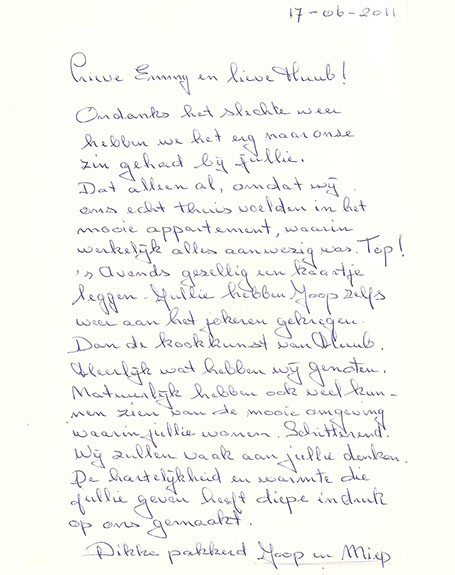 17-06-2011
Lieve Emmy en lieve Huub!
Ondanks het slechte weer
hebben we het erg naar onze
zin gehad bij jullie.
Dat alleen al, omdat wij
ons echt thuis voelden in het
mooie appartement, waarin
werkelijk alles aanwezig was. Top!
's Avonds gezellig een kaartje
leggen. Jullie hebben Joop zelfs
weer aan het jokeren gekregen.
Dan de kookkunst van Huub.
Heerlijk wat hebben wij genoten.
Natuurlijk hebben ook veel kun-
nen zien van de mooie omgeving
waarin jullie wonen. Schitterend.
Wij zullen vaak aan jullie denken.
De hartelijkheid en warmte die
jullie geven heeft diepe indruk
op ons gemaakt.
Dikke pakkerd Joop en Miep